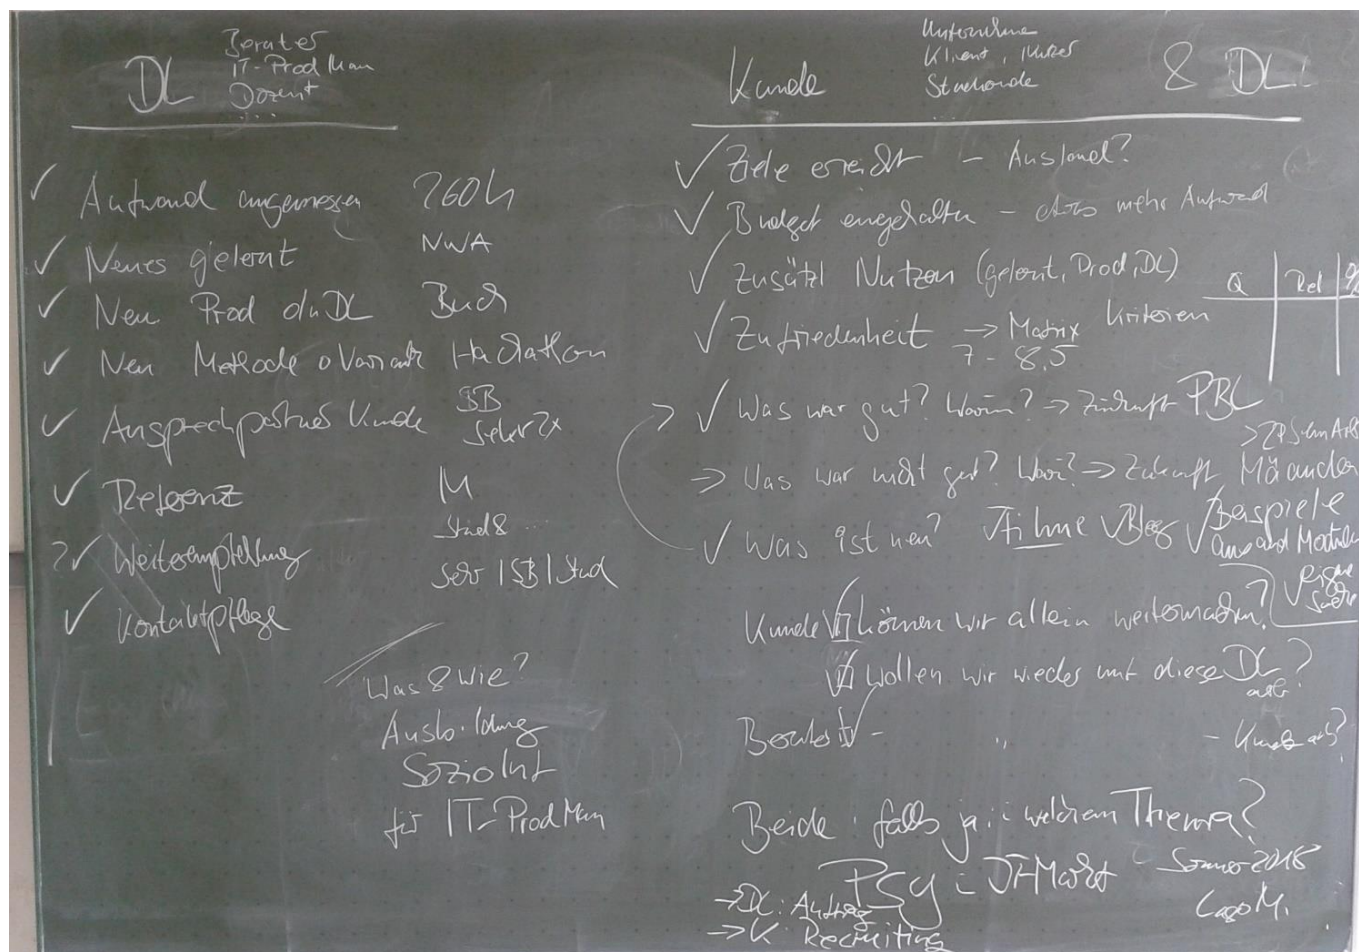 DL
Berater
IT-ProdMan
Dozent
...
✓ Aufwand angemessen 260h
✓ Neues gelernt NWA
✓ Neu Prod o/u DL Buch
✓ Neu Methode o Variante Hackathon
✓ Ansprechpartner Kunde SB
Sekr 2x
✓ Referenz M
Stud & ...
?✓ Weiterempfehlung Sekr | SB | Stud
✓ Kontaktpflege
Was & Wie?
Ausbildung
SozioInf
für IT-ProdMan
Kunde
Unternehme
Klient, Nutzer
Studierende
...
& DL
✓ Ziele erreicht - Ausland?
✓ Budget eingehalten - etwas mehr Aufwand
✓ Zusätzl Nutzen (gelernt, Prod, DL)
✓ Zufriedenheit → Matrix Kriterien
7 - 8,5
Q | Rel |
→ ✓ Was war gut? Warum? → Zukunft PBL
→ Was war nicht gut? Warum? → Zukunft Mäander
✓ Was ist neu? ✓ Filme ✓ Blog ✓ Beispiele
aus and Modulen
✓ eigene
Suche
Kunde ✓ können wir allein weitermachen?
✓ Wollen wir wieder mit diese DL arb?
Berater ✓ - " - Kunde arb?
Beide: falls ja: welchem Thema?
PSY: IT-Markt - Sommer 2018
Lago M.
→ DL: Auftrag
→ K: Recruiting